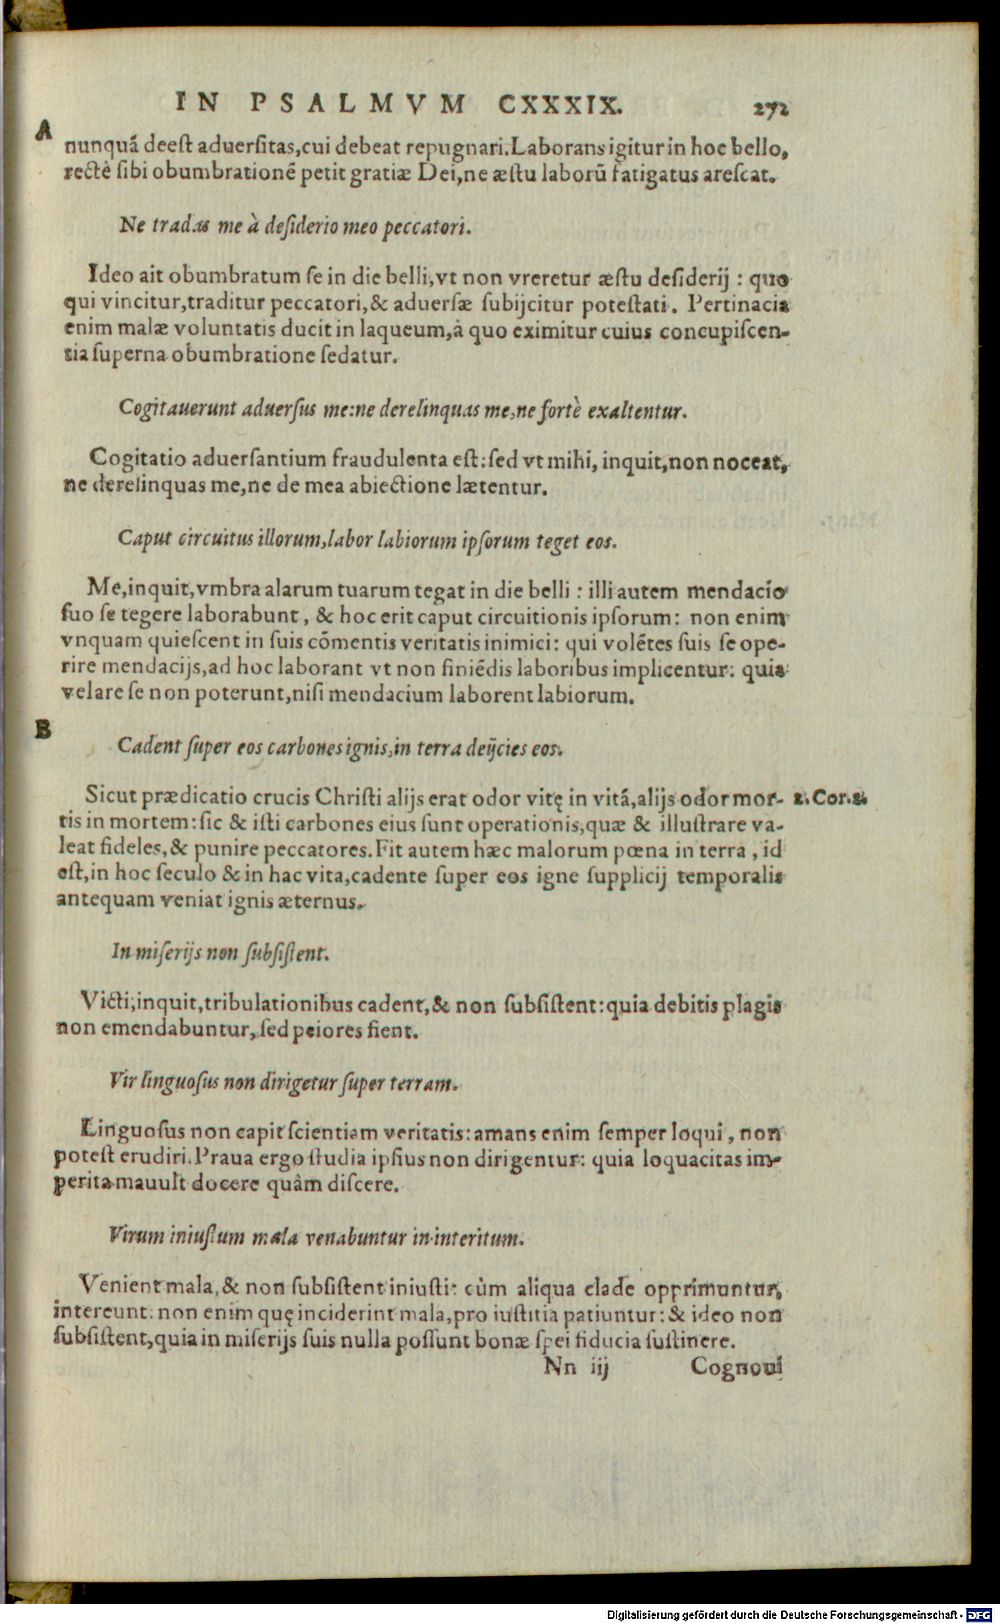 IN PSALMVM CXXXIX. 272
A
nunquā deest aduersitas,cui debeat repugnari.Laborans igitur in hoc bello,
rectè sibi obumbrationē petit gratiæ Dei,ne æstu laborū fatigatus arescat.
Ne tradas me à desiderio meo peccatori.
Ideo ait obumbratum se in die belli,vt non vreretur æstu desiderij : quo
qui vincitur,traditur peccatori,& aduersæ subijcitur potestati. Pertinacia
enim malæ voluntatis ducit in laqueum,à quo eximitur cuius concupiscen-
tia superna obumbratione sedatur.
Cogitauerunt aduersus me:ne derelinquas me,ne fortè exaltentur.
Cogitatio aduersantium fraudulenta est:sed vt mihi, inquit,non noceat,
ne derelinquas me,ne de mea abiectione lætentur.
Caput circuitus illorum,labor labiorum ipsorum teget eos.
Me,inquit,vmbra alarum tuarum tegat in die belli : illi autem mendacio
suo se tegere laborabunt, & hoc erit caput circuitionis ipsorum: non enim
vnquam quiescent in suis cōmentis veritatis inimici: qui volētes suis se ope-
rire mendacijs,ad hoc laborant vt non finiēdis laboribus implicentur: quia
velare se non poterunt,nisi mendacium laborent labiorum.
B
Cadent super eos carbones ignis,in terra deijcies eos.
Sicut prædicatio crucis Christi alijs erat odor vitę in vitā,alijs odor mor- 2.Cor.2.
tis in mortem:sic & isti carbones eius sunt operationis,quæ & illustrare va-
leat fideles,& punire peccatores.Fit autem hæc malorum pœna in terra , id
est,in hoc seculo & in hac vita,cadente super eos igne supplicij temporalis
antequam veniat ignis æternus.
In miserijs non subsistent.
Victi,inquit,tribulationibus cadent,& non subsistent:quia debitis plagis
non emendabuntur,sed peiores fient.
Vir linguosus non dirigetur super terram.
Linguosus non capit scientiam veritatis:amans enim semper loqui, non
potest erudiri.Praua ergo studia ipsius non dirigentur: quia loquacitas im-
perita mauult docere quàm discere.
Virum iniustum mala venabuntur in interitum.
Venient mala,& non subsistent iniusti: cùm aliqua clade opprimuntur,
intereunt: non enim quę inciderint mala,pro iustitia patiuntur: & ideo non
subsistent,quia in miserijs suis nulla possunt bonæ spei fiducia sustinere.
Nn iij Cognoui
Digitalisierung gefördert durch die Deutsche Forschungsgemeinschaft - DFG